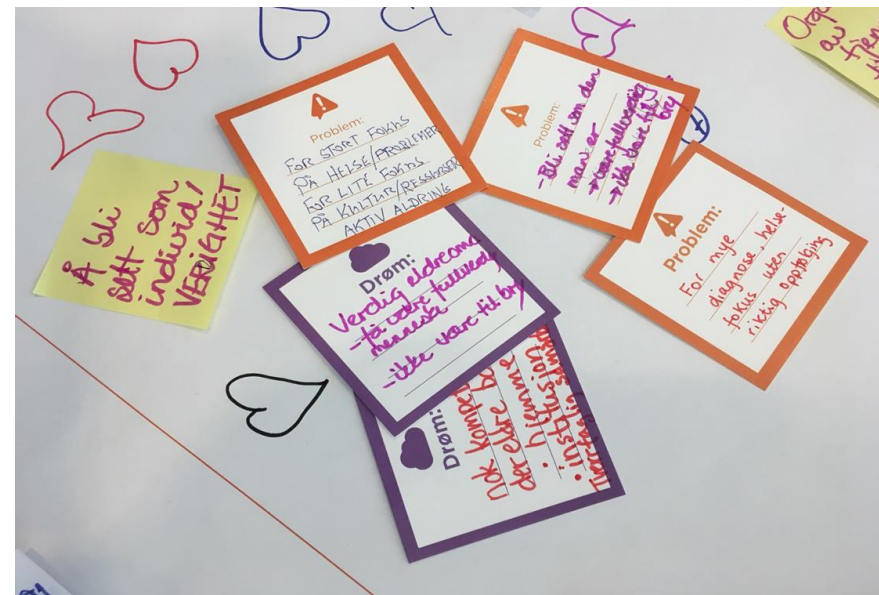 Å bli
sett som
individ/
VERDIGHET
Problem:
FOR STORT FOKUS
PÅ HELSE/PROBLEMER
FOR LITE FOKUS
PÅ KULTUR/RESSURSER
AKTIV ALDRING
Problem:
- Bli sett som den
man er
- være fullverdig
- ikke være til
bry
Problem:
For mye
diagnose, helse-
fokus uten
riktig oppfølging
Drøm:
Verdig eldreomso
- få være fullverdig
menneske
- ikke være til bry
Drøm:
nok kompe
der eldre bo
• hjemme
• institusjon
av
tjen